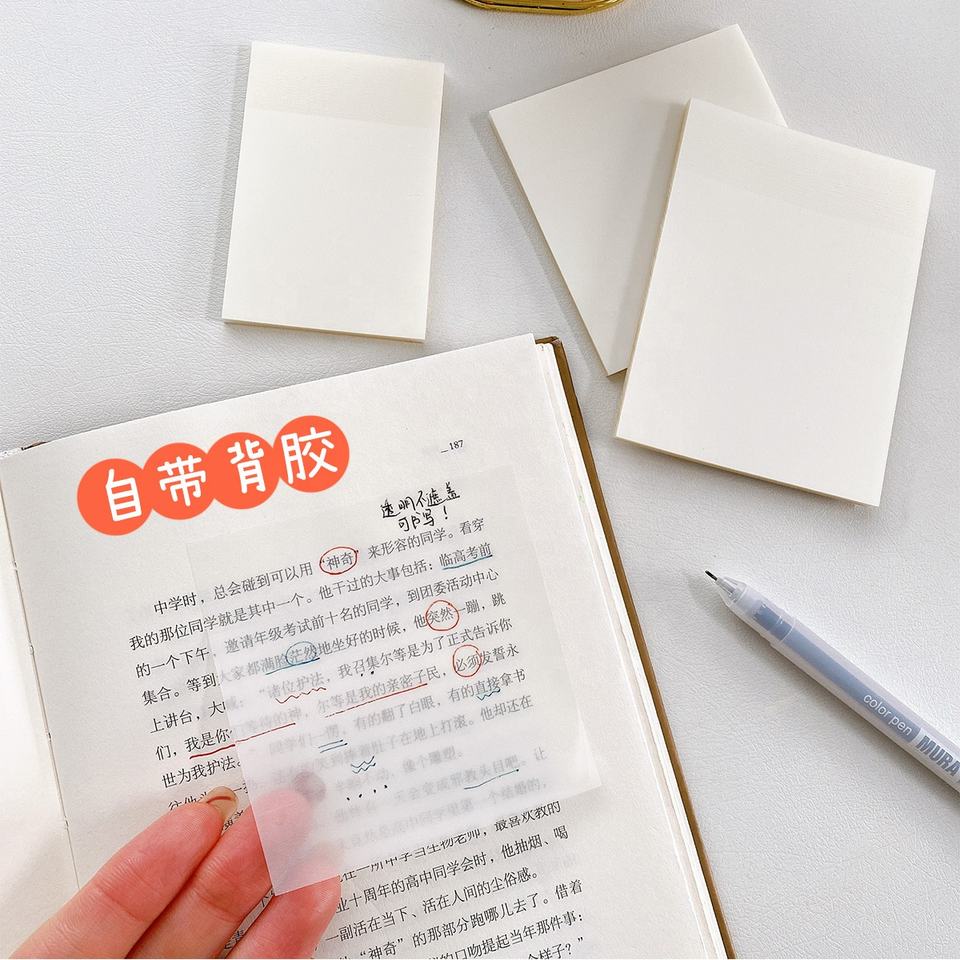 自带背胶
187
透明不遮盖
可书写！
中学时，总会碰到可以用“神奇”来形容的同学。看穿
我的那位同学就是其中一个。他干过的大事包括：临高考前
的一个下午，邀请年级考试前十名的同学，到团委活动中心
集合。等到大家都满脸茫然地坐好的时候，他突然一蹦，跳
上讲台，大喊：“诸位护法，我召集尔等是为了正式告诉你
们，我是你们等待的神，尔等是我的亲密子民，必须发誓永
世为我护法。同学们一愣，有的翻了白眼，有的直接拿书
笑到捧着肚子在地上打滚。他却还在
不动，像个雕塑。
天会变成邪教头目吧。让
高中同学里第一个结婚的，
在一所中学当生物老师，最喜欢教的
业十周年的高中同学会时，他抽烟、喝
一副活在当下、活在人间的尘俗感。
“神奇”的那部分跑哪儿去了。借着
的口吻提起当年那件事：
个样子？”
color pen MURA